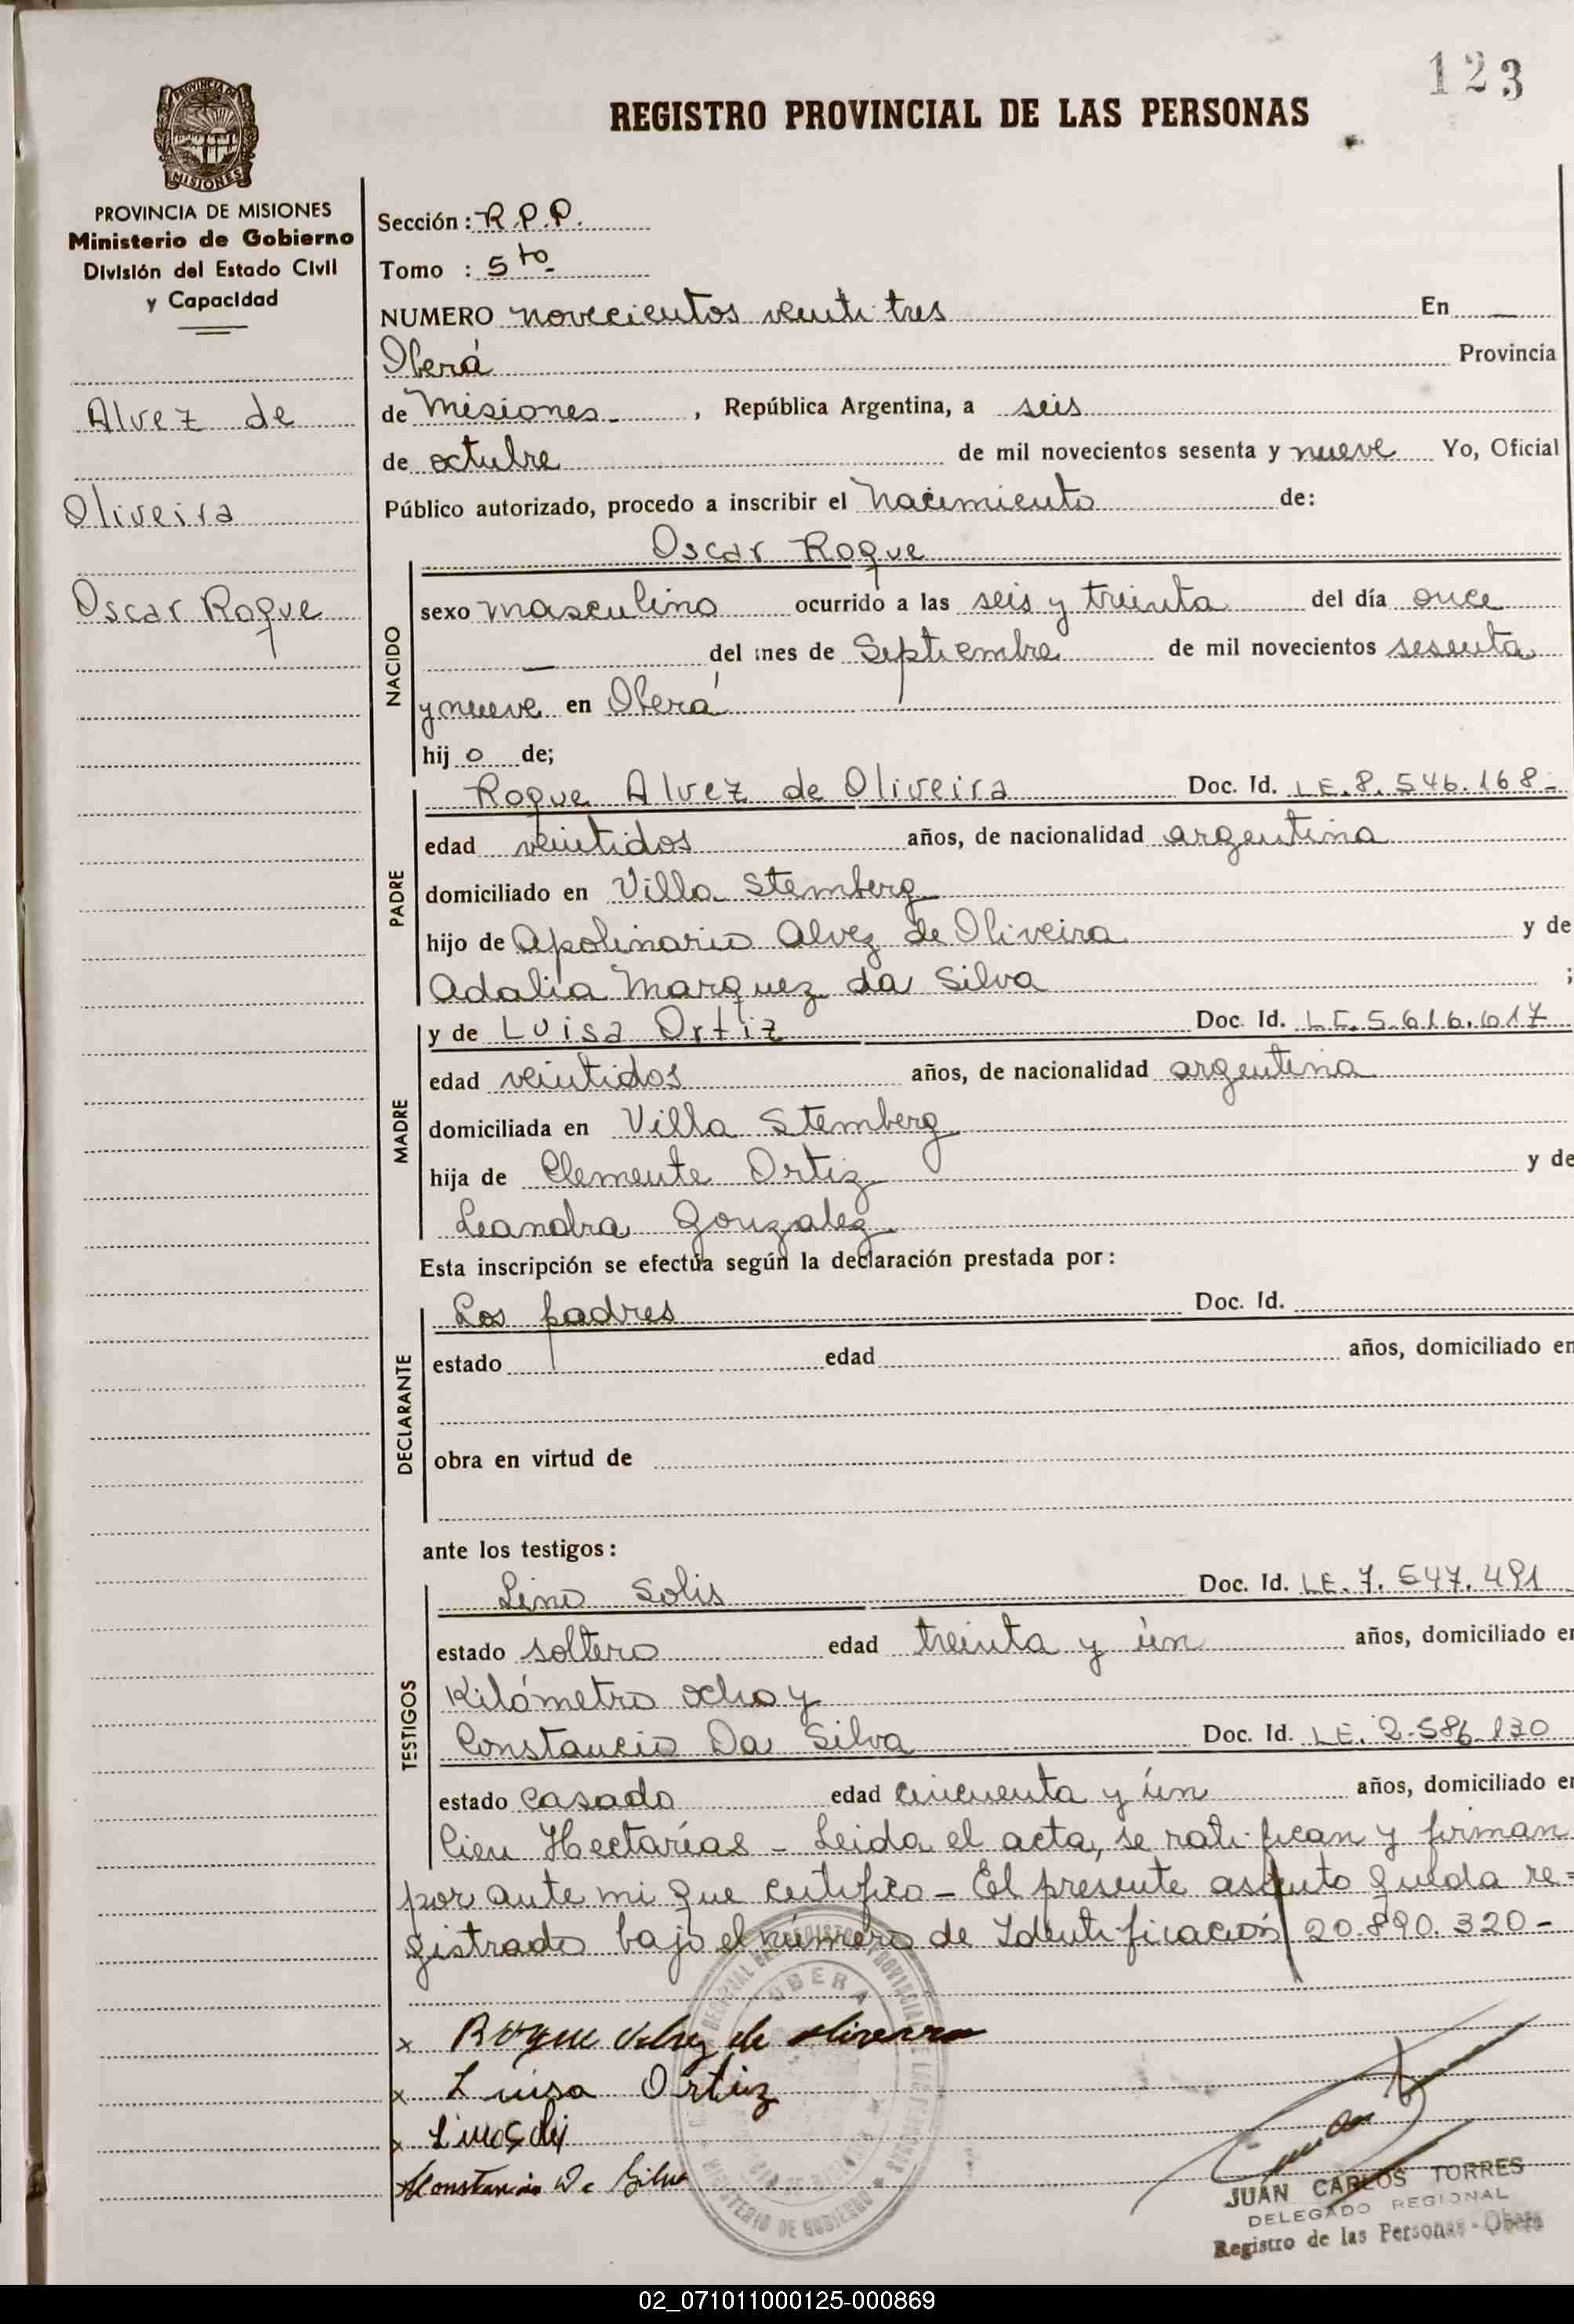 123
REGISTRO PROVINCIAL DE LAS PERSONAS
PROVINCIA DE MISIONES
Ministerio de Gobierno
División del Estado Civil
y Capacidad
Alvez de
Oliveira
Oscar Roque
Sección: R.P.P.
Tomo : 5to
NUMERO novecientos veinti tres En —
Oberá Provincia
de Misiones , República Argentina, a seis
de octubre de mil novecientos sesenta y nueve Yo, Oficial
Público autorizado, procedo a inscribir el nacimiento de:
Oscar Roque
NACIDO
sexo masculino ocurrido a las seis y treinta del día once
— del mes de Septiembre de mil novecientos sesenta
y nueve en Oberá
hij o de;
PADRE
Roque Alvez de Oliveira Doc. Id. LE. 8.546.168-
edad veintidos años, de nacionalidad argentina
domiciliado en Villa Stemberg
hijo de Apolinario Alvez de Oliveira y de
Adalia Marquez da Silva ;
MADRE
y de Luisa Ortiz Doc. Id. LC. 5.616.617
edad veintidos años, de nacionalidad argentina
domiciliada en Villa Stemberg
hija de Clemente Ortiz y de
Leandra Gonzalez
Esta inscripción se efectúa según la declaración prestada por:
DECLARANTE
Los padres Doc. Id.
estado edad años, domiciliado en
obra en virtud de
ante los testigos:
TESTIGOS
Lino Solis Doc. Id. LE. 7.547.491
estado soltero edad treinta y ún años, domiciliado en
Kilómetro ocho y
Constancio Da Silva Doc. Id. LE. 2.586.130
estado casado edad cincuenta y ún años, domiciliado en
Cien Hectarías - Leida el acta, se ratifican y firman
por ante mi que certifico - El presente asiento queda re=
gistrado bajo el número de Identificación 20.890.320-
x Roque Alvez de Oliveira
x Luisa Ortiz
x Lino Solis
x Constancio Da Silva
OBERA
MINISTERIO DE GOBIERNO
JUAN CARLOS TORRES
DELEGADO REGIONAL
Registro de las Personas - Oberá
02_071011000125-000869